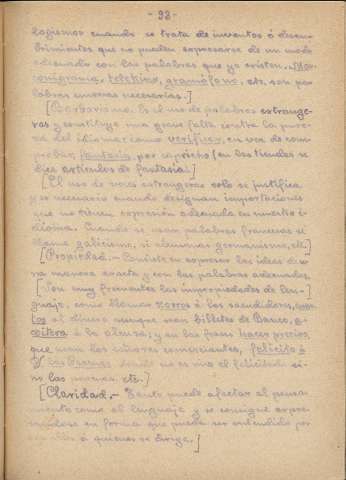 - 92 -
logismos cuando se trata de inventos ó descu-
brimientos que no pueden expresarse de un modo
adecuado con las palabras que ya existen. Mar-
conigrama, teletkino, gramófono, etc, son pa-
labras nuevas necesarias.]
[Barbarismo. Es el uso de palabras extranje-
ras y constituye una grave falta contra la pure-
za del idioma: como verificar, en vez de com-
probar, fantasía, por capricho (en las tiendas se
dice artículos de fantasía)]
[El uso de voces extranjeras solo se justifica
y es necesario cuando designan importaciones
que no tienen expresión adecuada en nuestro i-
dioma. Cuando se usan palabras francesas se
llama galicismo, si alemanas germanismo, etc.]
[Propiedad.- Consiste en expresar las ideas de u-
na manera exacta y con las palabras adecuadas.
[Son muy frecuentes las impropiedades de len-
guaje, como llamar zorros á los sacudidores,
al dinero aunque sean billetes de Banco,
á la aceitera; y en las frases hacer precios,
que usan los señores comerciantes, felicito á
V. las Pascuas donde no es uno el felicitado si-
no las pascuas, etc.]
[Claridad.- Tanto puede afectar al pensa-
miento como al lenguaje y se consigue expre-
sándose en forma que pueda ser entendido por
á quienes se dirige.]